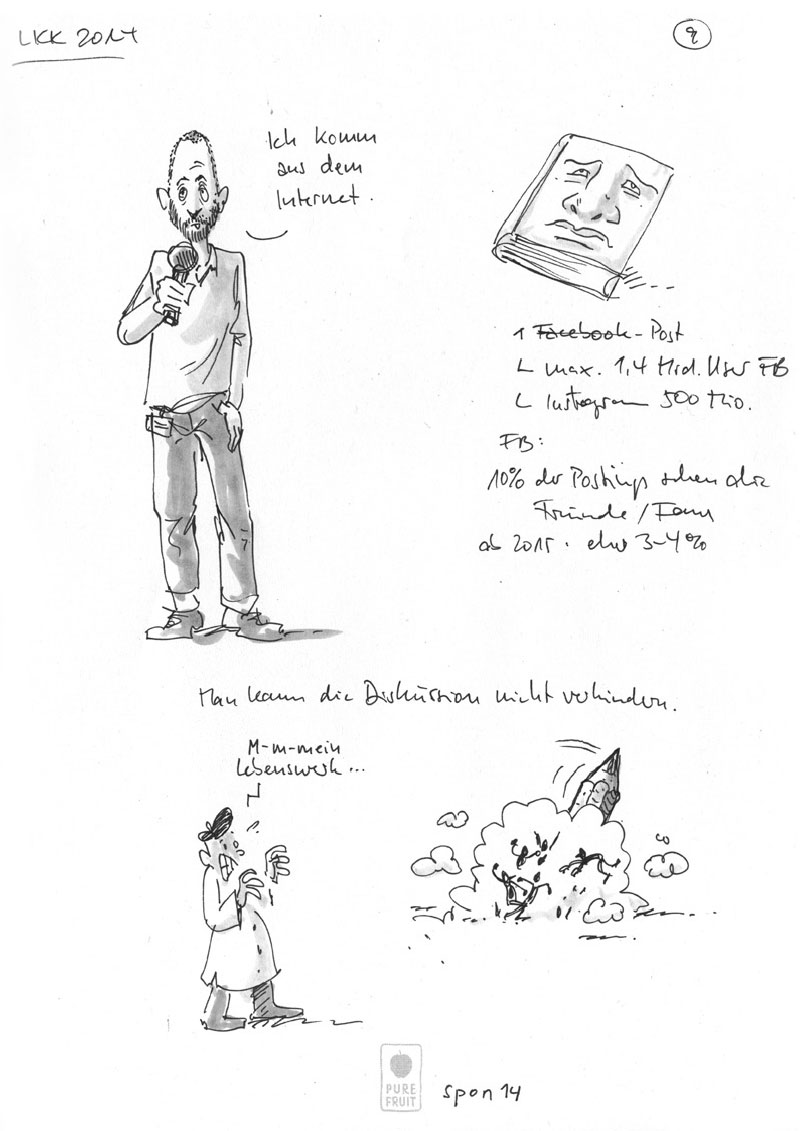 LKK 2014
9
Ich komm
aus dem
Internet.
1 Facebook-Post
max. 1,4 Mrd. User FB
Instagram 500 Mio.
FB:
10% der Postings sehen
Freunde / Fans
ab 2015. eher 3-4%
Man kann die Diskussion nicht verhindern.
M-m-mein
Lebenswerk...
PURE
FRUIT
spon 14